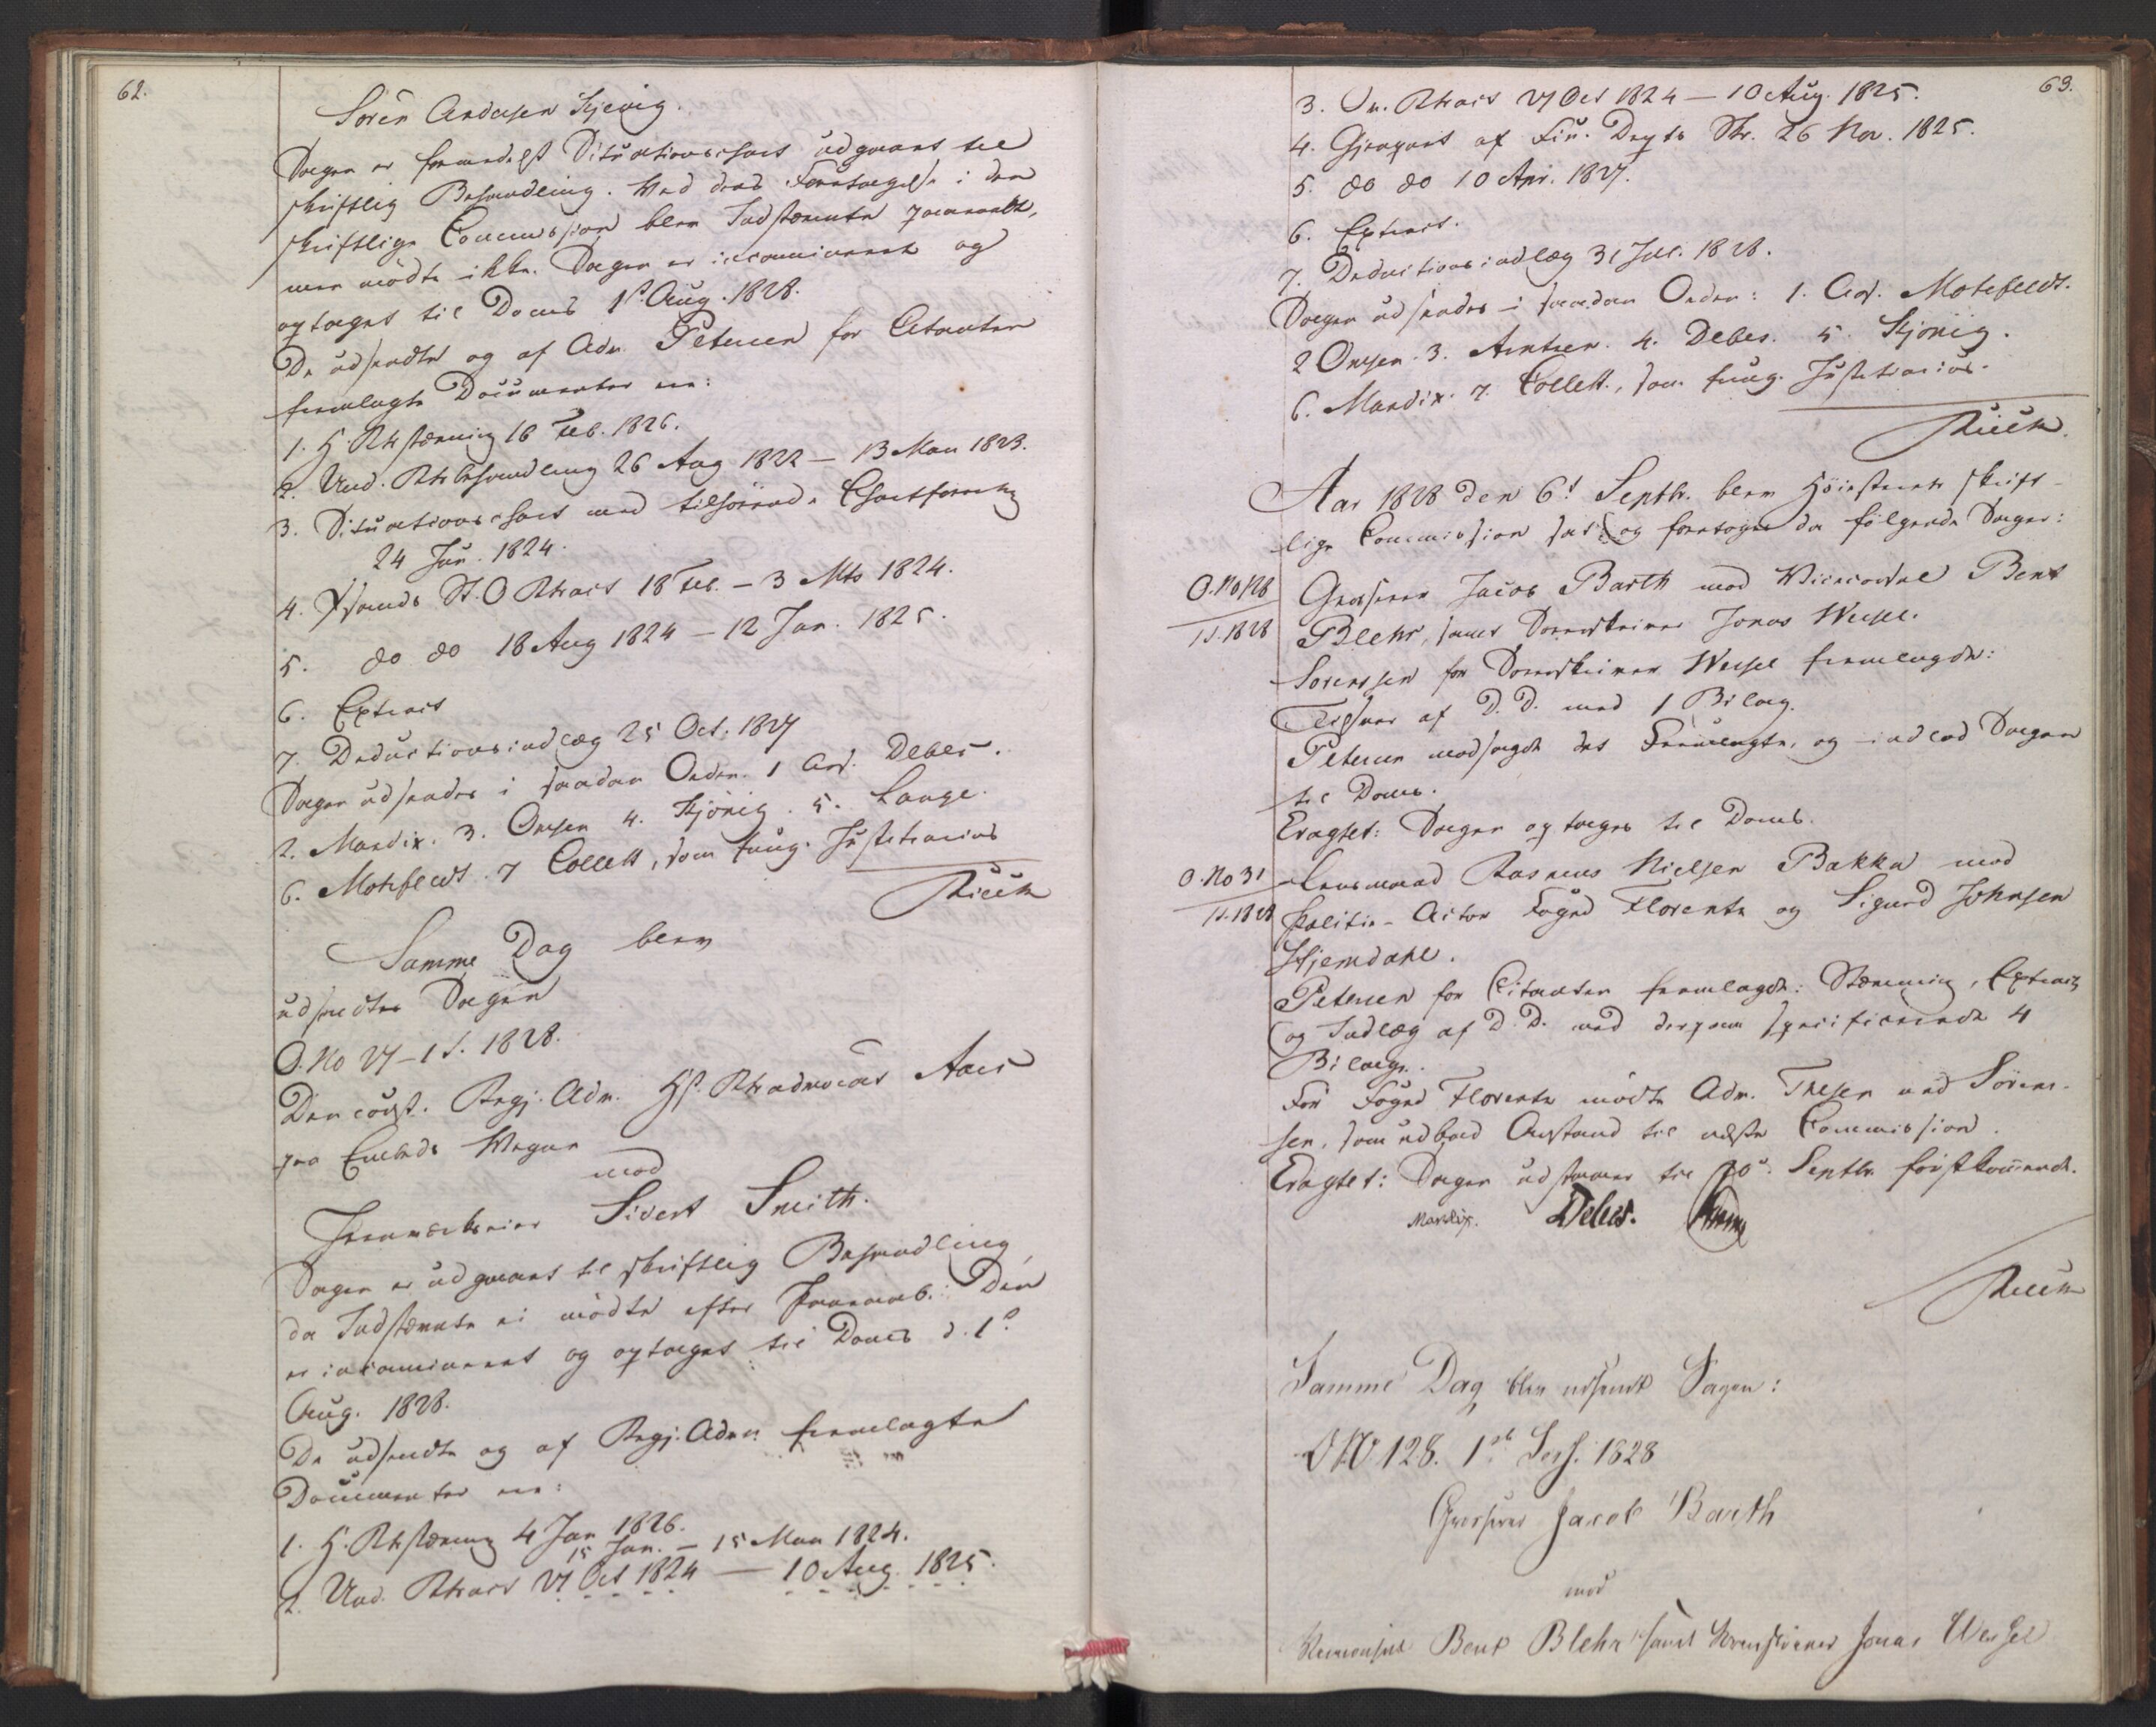 62.
Sören Andersen Schevig.
Sagen er formedelst Situationschart udgaaet til
skriftlig Behandling. Ved dens Foretagelse i den
skriftlige Commission blev Indstævnte paaraabt,
men mödte ikke. Sagen er incamineret og
optaget til Doms 1ste Aug. 1828.
De udsendte og af Adv. Petersen for Citanten
fremlagte Documenter ere:
1. H. Rtstævning 16 Feb. 1826.
2. Und. Rtsbehandling 26 Aug 1822 – 13 Mai 1823.
3. Situationschart med tilhörende Chartforretn
24 Jun. 1824.
4. Xsands St. O Rtsact 18 Feb. – 3 Mts 1824.
5. do do 18 Aug 1824 – 12 Jan. 1825.
6. Extract
7. Deductionsindlæg 25 Oct. 1827
Sagen udsendes i saadan Orden. 1 Ass. Debes.
2. Mandix. 3. Omsen 4. Hjönig. 5. Lange.
6. Motzfeldt. 7 Collett, som fung. Justitiarius
Samme Dag blev
udsendtes Sagen
O. No 27 – 1 S. 1828.
Den const. Regj. Adv. Hst. Rtsadvocat Aars
paa Embeds Vegne
mod
Jernværkseier Sivert Smith.
Sagen er udgaaet til skriftlig Behandling,
da Indstævnte ei mödte efter Paaraab. Den
er incamineret og optaget til Doms d. 1ste
Aug. 1828.
De udsendte og af Regj. Adv. fremlagte
Documenter ere:
1. H. Rtstævning 4 Jan 1826.
15 Jan. – 15 Mai 1824.
2. Und. Rtsact 27 Oct 1824 – 10 Aug. 1825.
63.
3. Ov. Rtsact 27 Oct 1824 – 10 Aug. 1825.
4. Gjenpart af Fin. Depts Skr. 26 Nov. 1825.
5. do do 10 Apr. 1827.
6. Extract.
7. Deductionsindlæg 31 Jul. 1828.
Sagen udsendes i saadan Orden: 1. Ass. Motzfeldt.
2 Omsen. 3. Arntzen. 4. Debes. 5. Hjönig.
6. Mandix. 7. Collett, som fung. Justitiarius.
Aar 1828 den 6te Septbr. blev Höiesterets skrift-
lige Commission sat og foretoges da fölgende Sager:
O. No 128
1 S. 1828
Grosserer Jacob Barth mod Viceconsul Bent
Blehr, samt Sorenskriver Jonas Wessel.
Sörenssen for Sorenskriver Wessel fremlagde:
Tilsvar af D. D. med 1 Bilag.
Petersen modsagde det Fremlagte, og indlod Sagen
til Doms.
Eragtet: Sagen optages til Doms.
O. No 31
1 S. 1828
Lensmand Rasmus Nielsen Bakka mod
Politie-Actor Foged Florentz og Sigurd Johnsen
Hjemdahl.
Petersen for Citanten fremlagde: Stævning, Extract
og Indlæg af D. D. med derpaa specificerede 4
Bilage.
For Foged Florentz mödte Adv. Thesen ved Sörens-
sen, som udbad Anstand til næste Commission.
Eragtet: Sagen udstaaer til 20de Septbr. förstkommende.
Mandix. Debes.
Samme Dag blev udsendt Sagen:
O No 128. 1ste Sess. 1828
Grosserer Jacob Barth
mod
Viceconsul Bent Blehr samt Sorenskriver Jonas Wessel